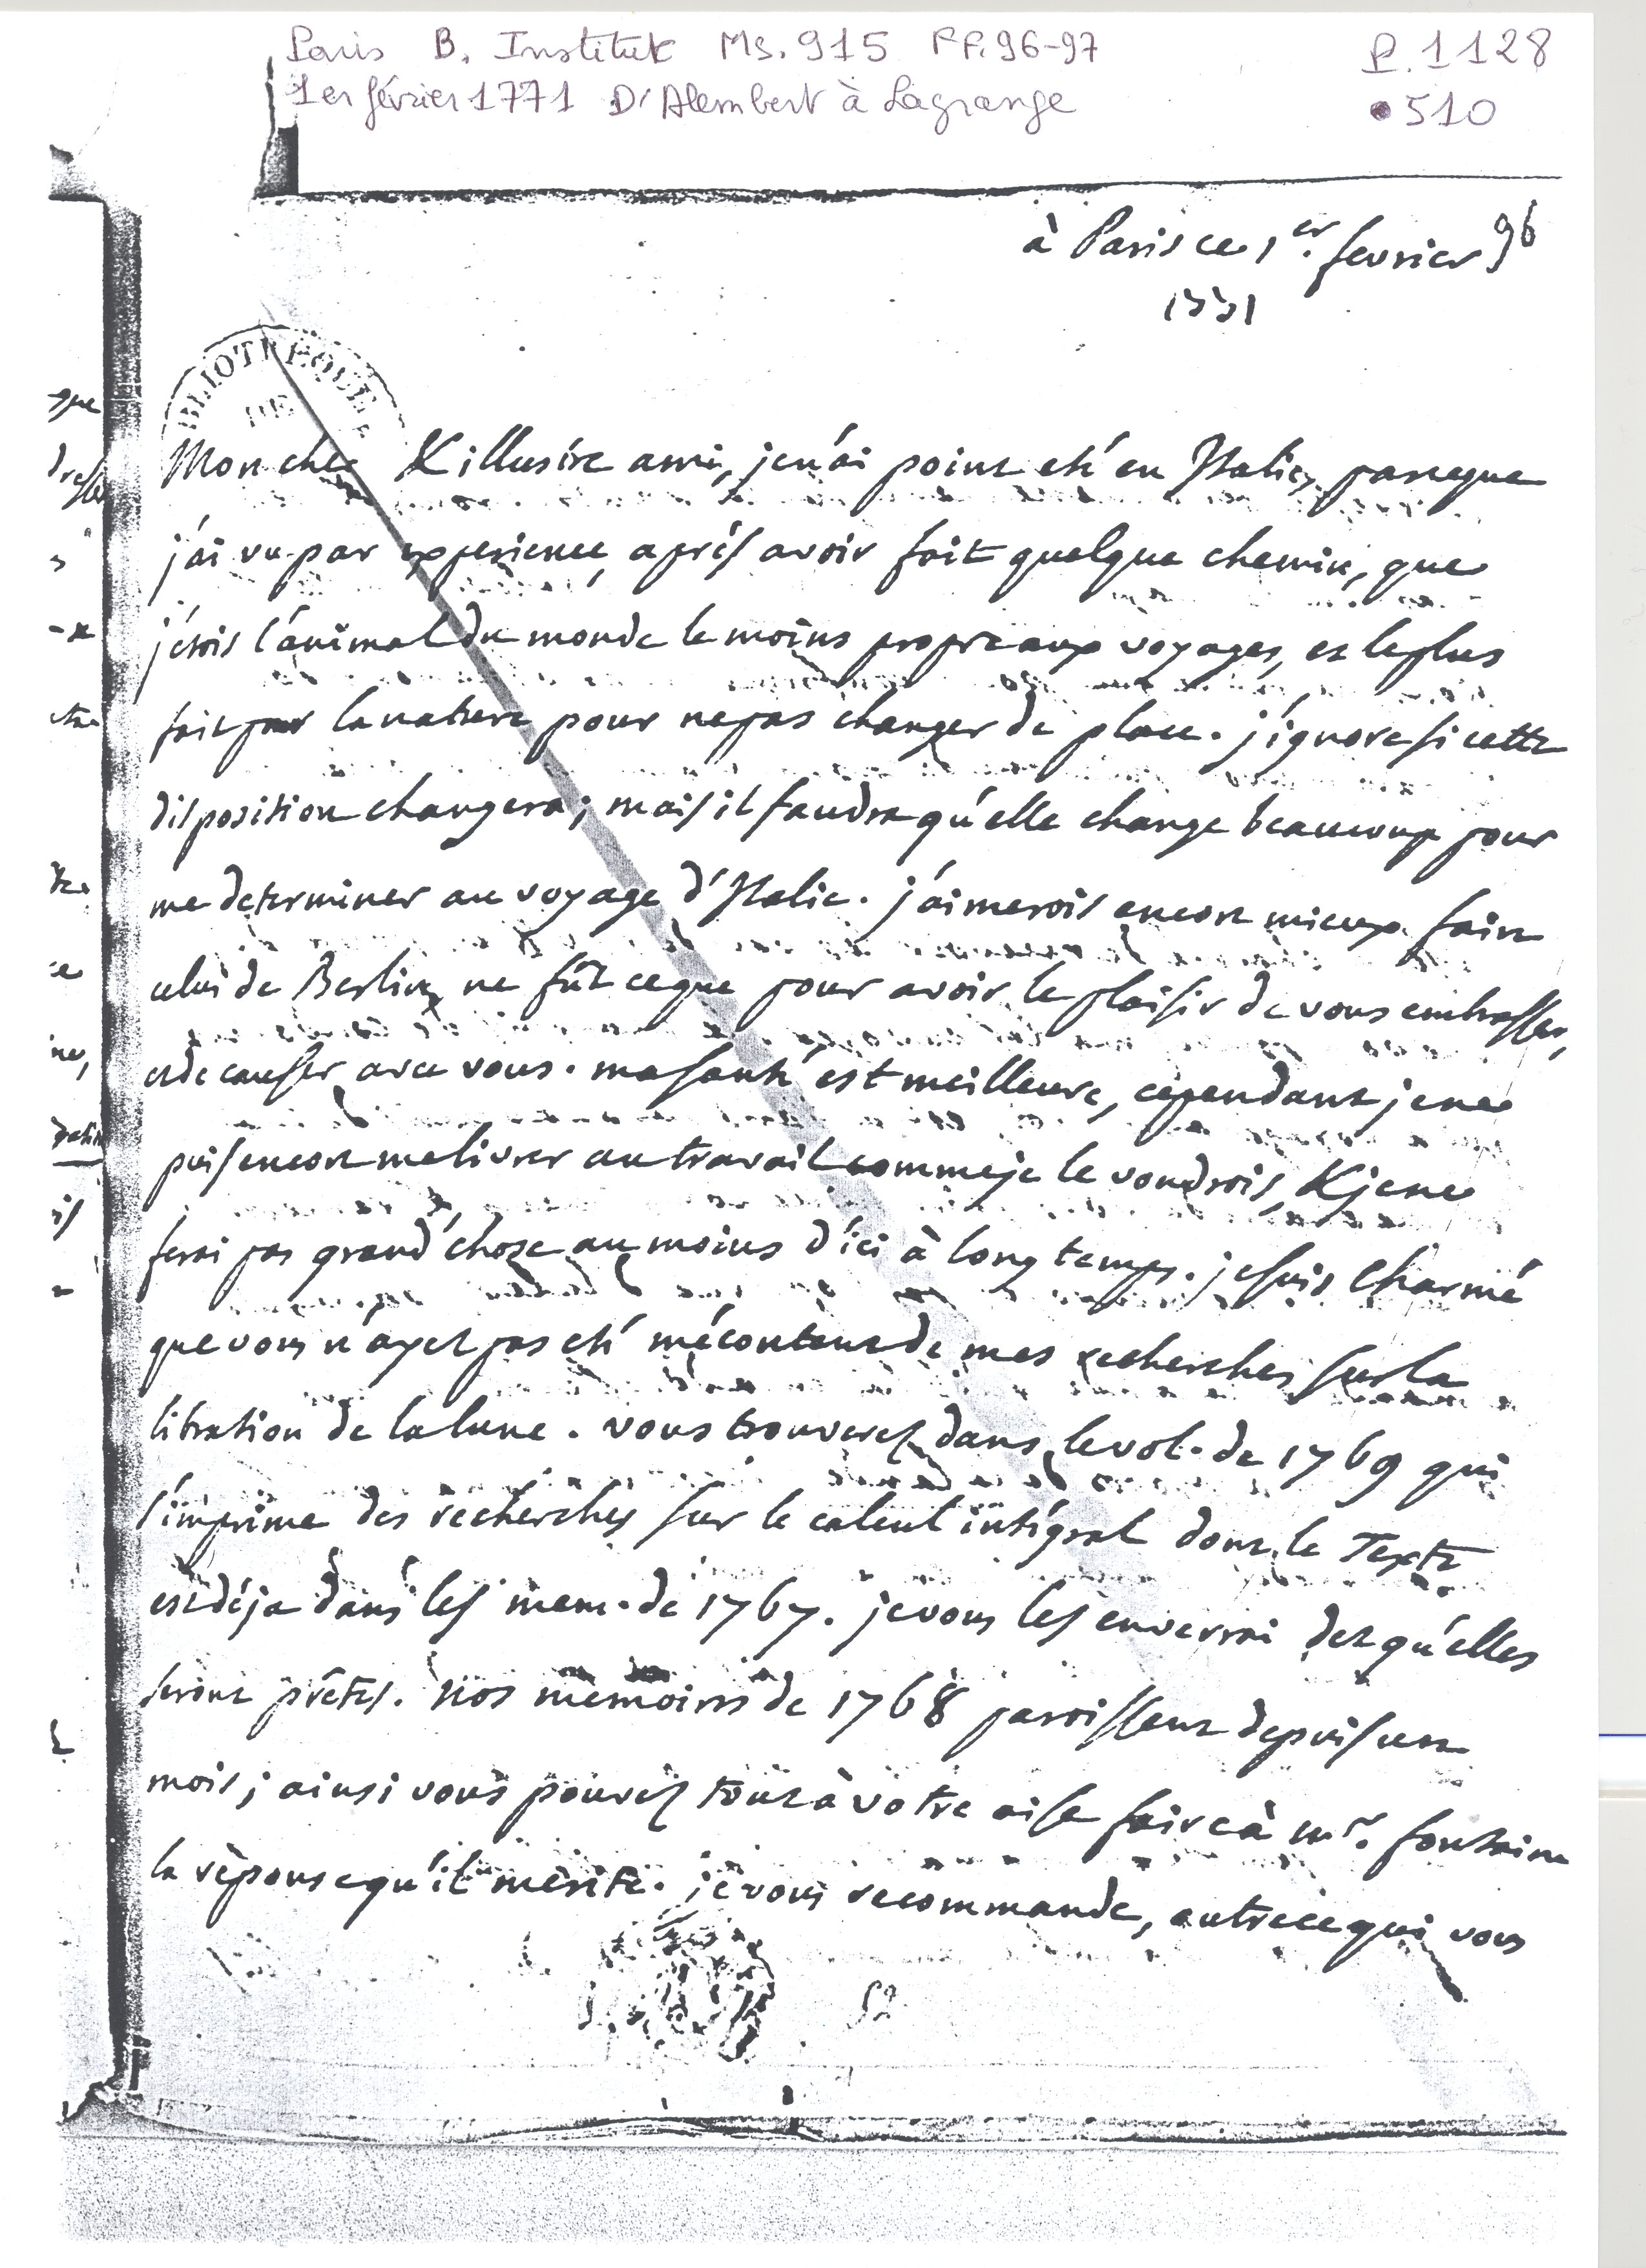 Paris B. Institut Ms. 915 FF. 96-97
P. 1128
1er février 1771 D'Alembert à Lagrange
510
à Paris ce 1er. fevrier
96
1771
BIBLIOTHEQUE
DE
Mon cher & illustre ami, je n'ai point eté en Italie, parceque
j'ai vu par experience, aprés avoir fait quelque chemin, que
j'etois l'animal du monde le moins propre aux voyages, et le plus
fait par la nature pour ne pas changer de place. j'ignore si cette
disposition changera; mais il faudra qu'elle change beaucoup pour
me determiner au voyage d'Italie. j'aimerois encore mieux faire
celui de Berlin, ne fût ce que pour avoir le plaisir de vous embrasser,
et de causer avec vous. ma santé est meilleure, cependant je ne
puis encore me livrer au travail comme je le voudrois, & je ne
ferai pas grand'chose au moins d'ici à long temps. je suis charmé
que vous n'ayez pas eté mécontent de mes recherches sur la
libration de la lune. vous trouverez dans le vol. de 1769 qui
s'imprime des recherches sur le calcul intégral dont le Texte
est déja dans les mem. de 1767. je vous les enverrai dez qu'elles
seront prêtes. nos mémoires de 1768 paroissent depuis un
mois; ainsi vous pouvez tout à votre aise faire à mr. fontaine
la réponse qu'il mérite. je vous recommande, outre ce qui vous
52